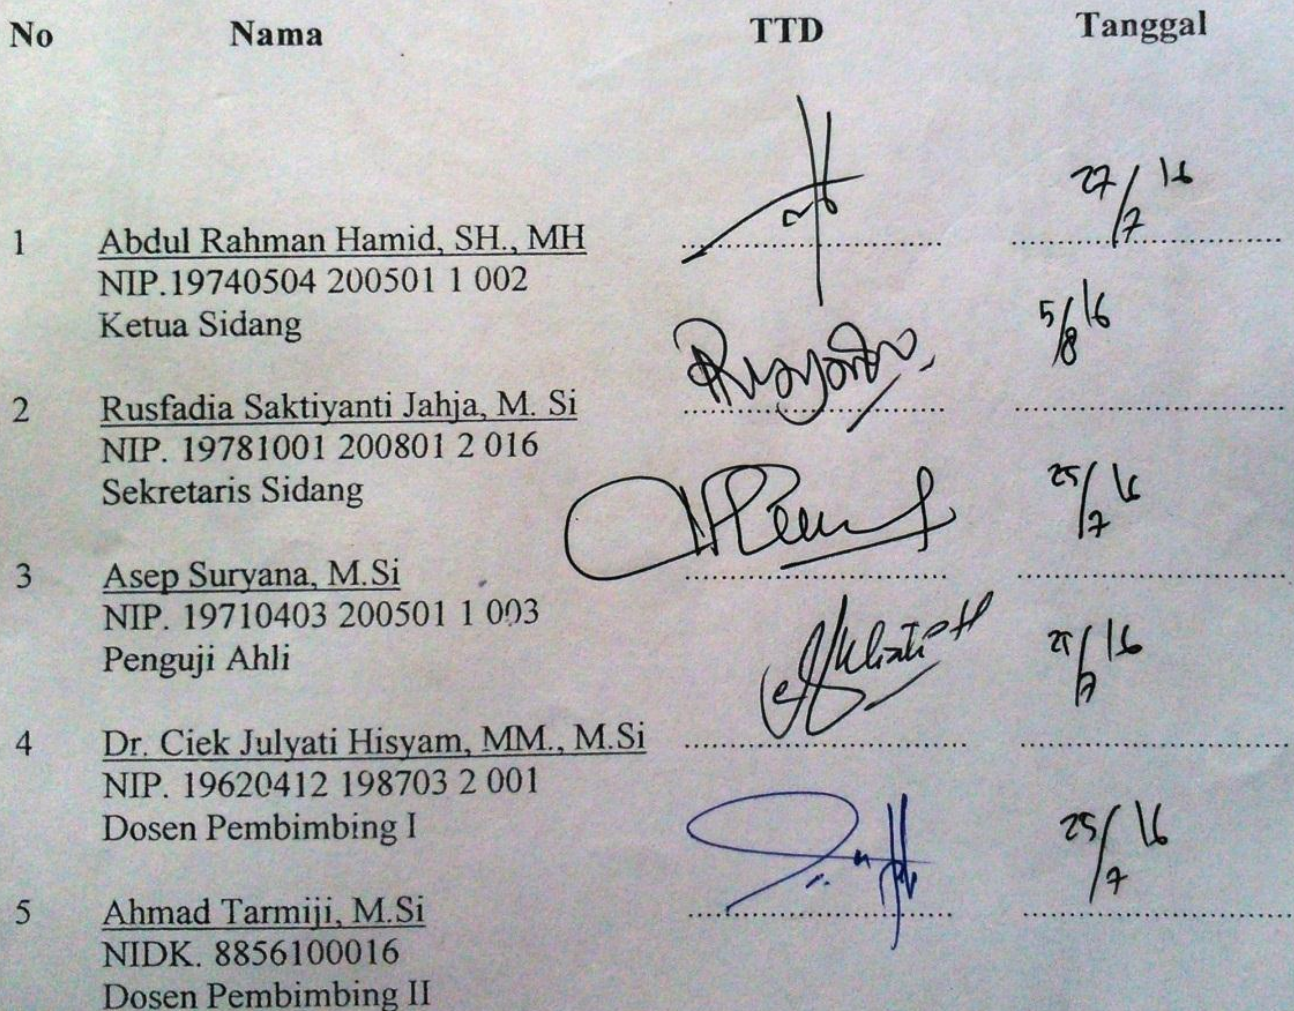 No Nama TTD Tanggal
27/7 16
1 Abdul Rahman Hamid, SH., MH
NIP.19740504 200501 1 002
Ketua Sidang
5/8 16
2 Rusfadia Saktiyanti Jahja, M. Si
NIP. 19781001 200801 2 016
Sekretaris Sidang
25/7 16
3 Asep Suryana, M.Si
NIP. 19710403 200501 1 003
Penguji Ahli
/7 16
4 Dr. Ciek Julyati Hisyam, MM., M.Si
NIP. 19620412 198703 2 001
Dosen Pembimbing I
25/7 16
5 Ahmad Tarmiji, M.Si
NIDK. 8856100016
Dosen Pembimbing II